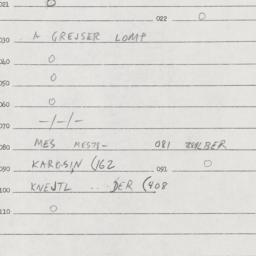 021 O
022 O
030 A GREJSER LOMP
040 O
050 O
060 O
070 -/-/-
080 MES MESTS- 081
090 KAROSIN (162 091 O
100 KNEJTL ... DER (408
110 O